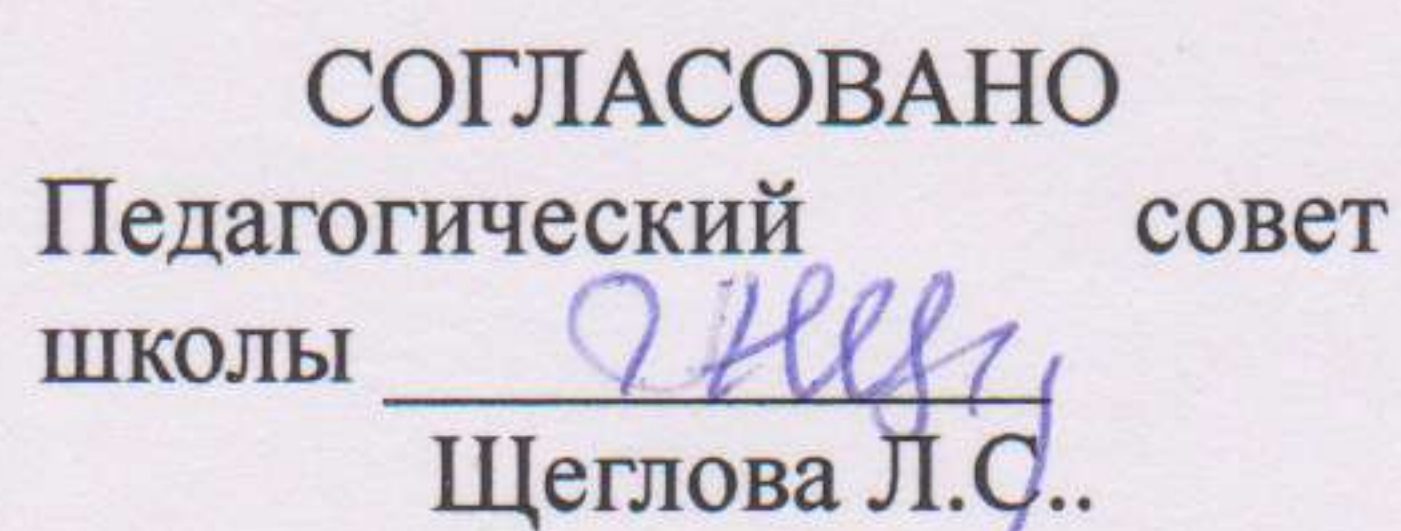 СОГЛАСОВАНО
Педагогический совет
школы
Щеглова Л.С..